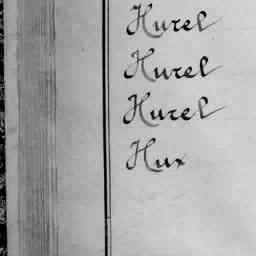 Hurel
Hurel
Hurel
Hux